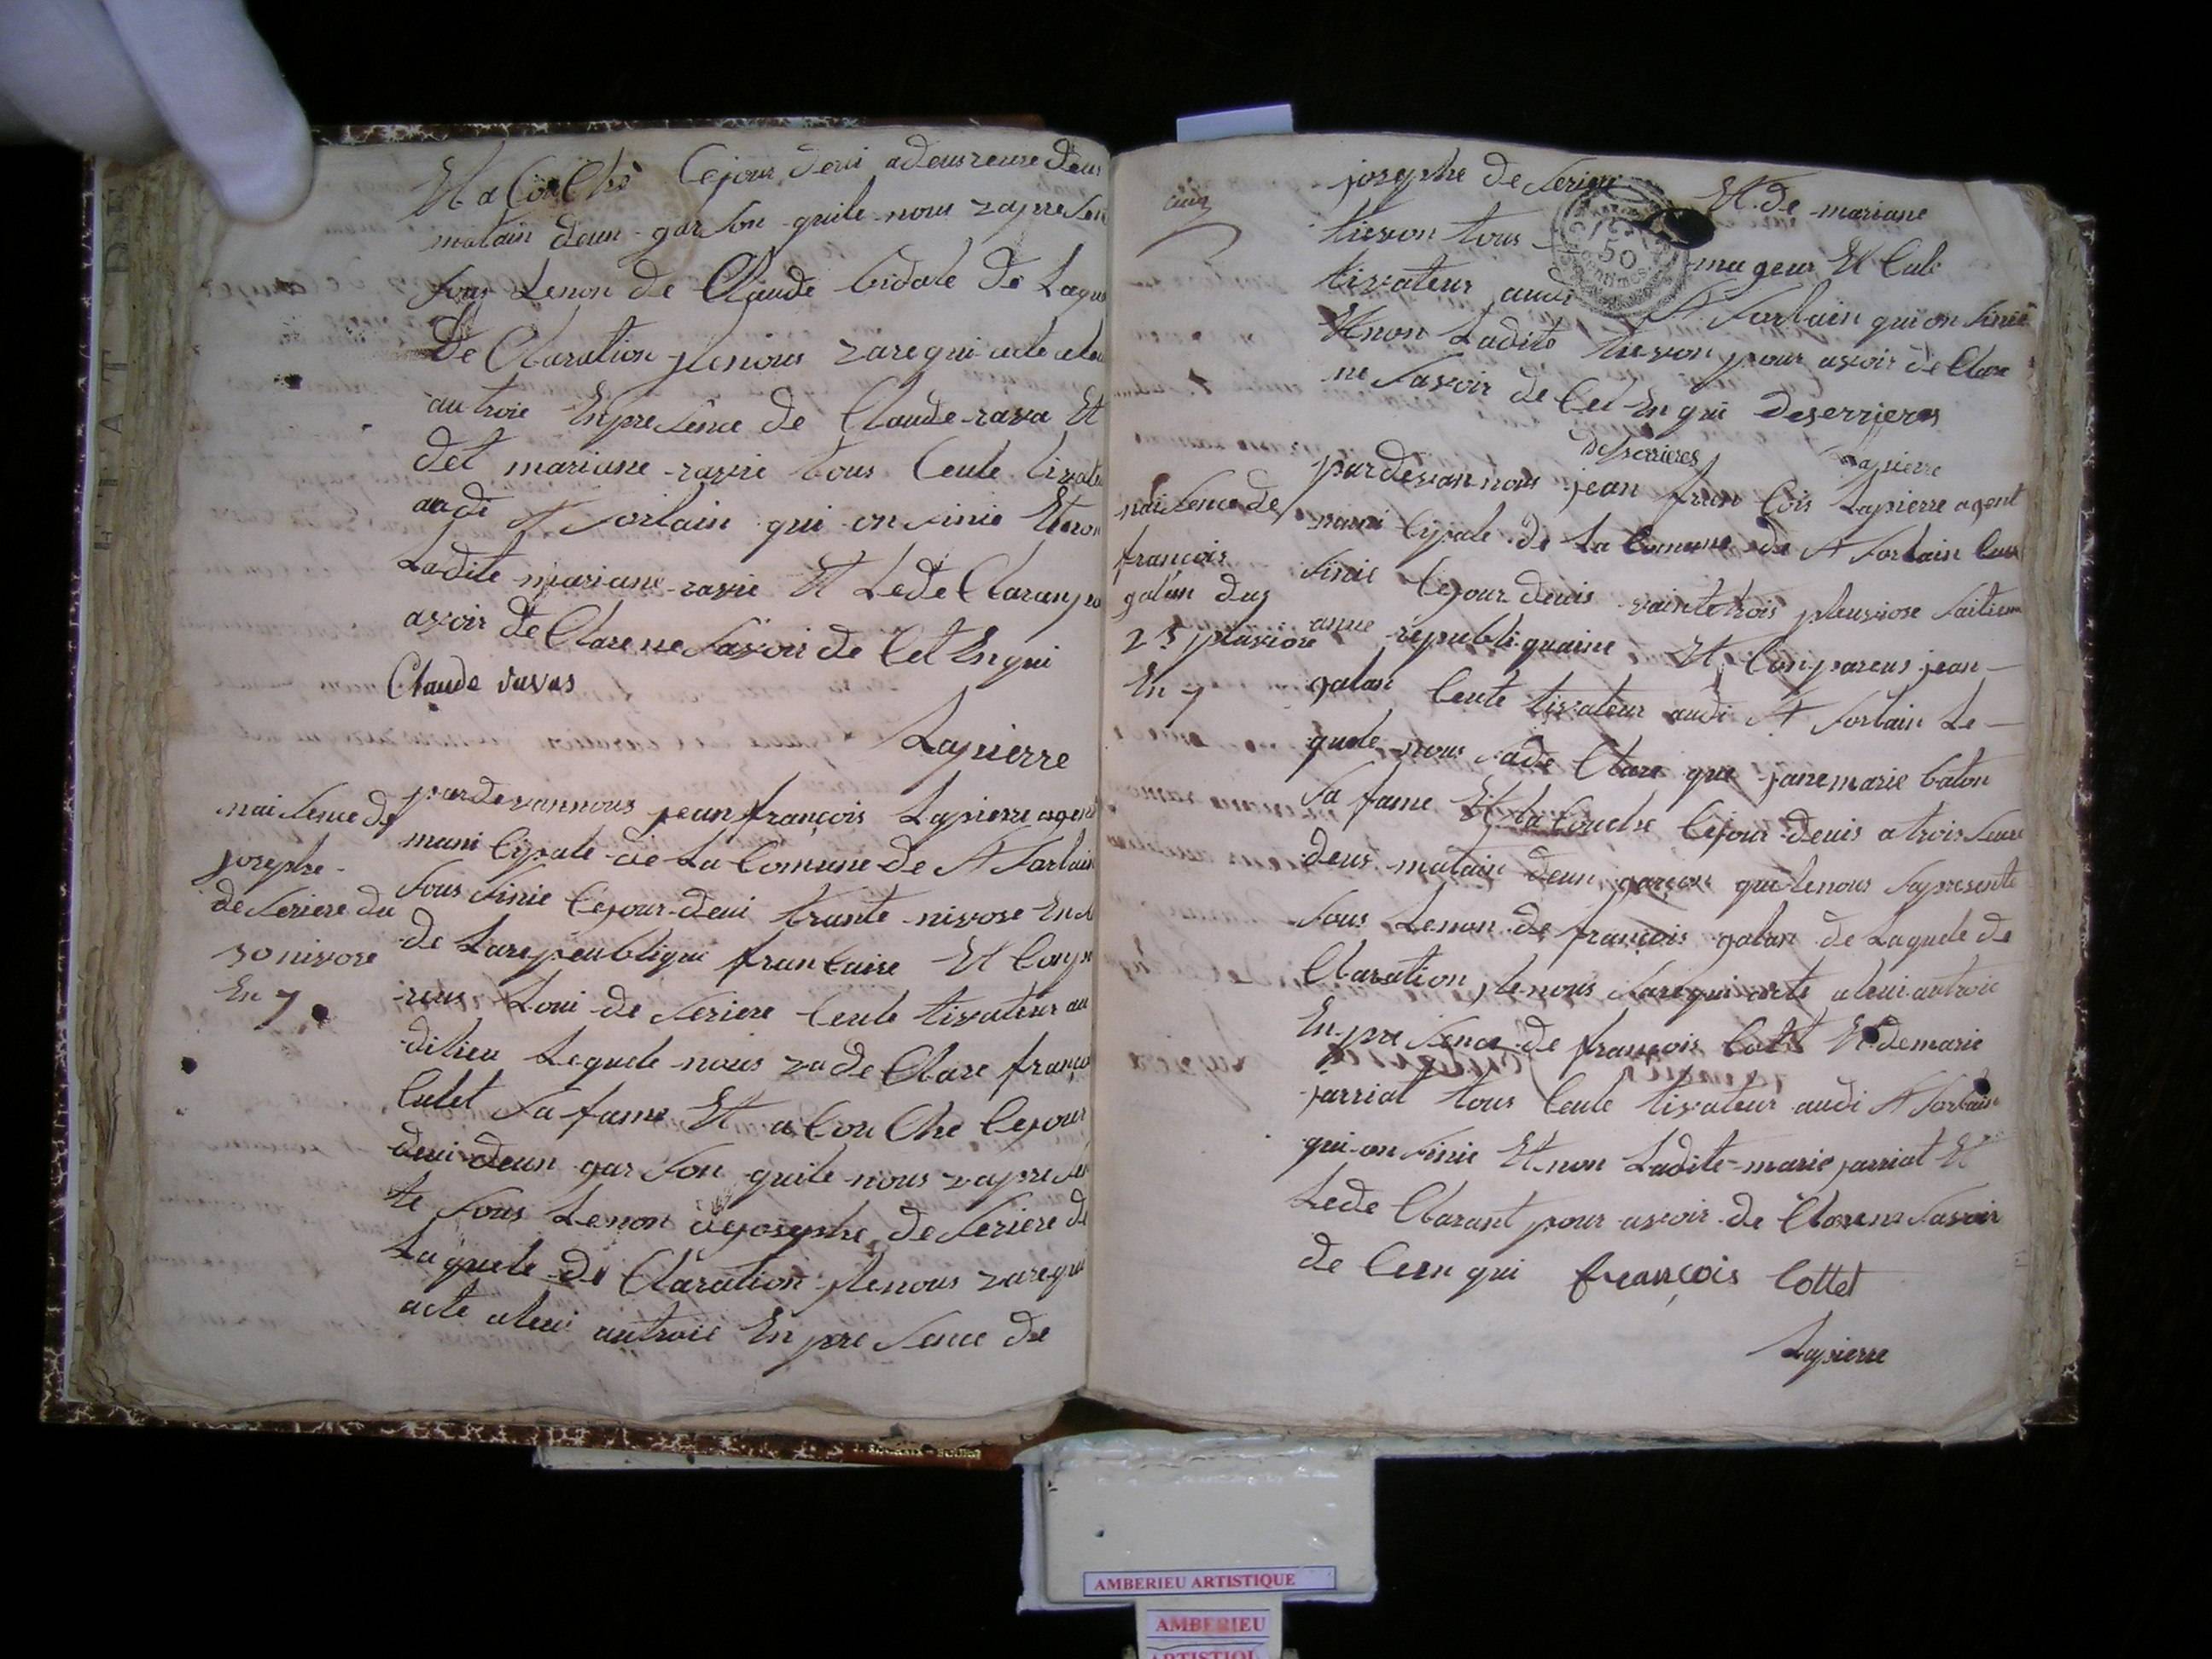 Et a Couche Cejour deui adeuseure deu
matain deun garson quile nous zapresen
sous Lenon de Claude bidale de Laque
de Claration jlenous zarequi acte aleu
autroie Enpresence de Claude rava Et
det mariane ravie tous Ceule tivate
audi St sorlain qui on sinie Etnon
Ladite mariane ravie Et Lede Claran po
avoir de Clare ne savoir de Cet Enqui
Claude ravas
Lapierre
naisence de
josephe
de seriere du
30 nivose
En 7
pardevannous jean françois Lapierre agent
muni Cipale de La Comune de St Sorlain
sous sinie Cejour deui trante nivose En
de Larepeublique francaise Et Conpa
reus Loui de seriere Ceule tivateur au
dilieu Lequele nous zade Clare franço
Culet sa fame Et a Couche Cejour
deui deun garson quile nous zapresen
te sous Lenon dejosephe de seriere de
Laquele de Claration jlenous zarequi
acte aleui autroie En presence de
cinq
josephe de seriere Et de mariane
tievon tous mageur Et Cule
tivateur audi St Sorlain qui on sinié
Et non Ladite tievon pour avoir de Clare
ne savoir de Cet Enqui Deserrieres
Desserrieres Lapierre
naisence de
françois
galan du
23 pluviose
En 7
pardevan nous jean fran Cois Lapierre agent
muni Cipale de La Comune de St Sorlain sous
sinié Cejour deuis vaintetrois pleuviose saitieme
anne republiquaine Et Conpareus jean
galan Ceule tivateur audi St Sorlain Le
quele nous sade Clare que janemarie baton
sa fame Et la Couche Cejour deuis a trois seure
deus matain deun garçon quilenous sapresente
sous Lenon de françois galan de Laquele de
Claration jlenous sarequi acte aleui autroie
En presence de françois Cotet Et demarie
jarriat tous Ceule tivateur audi St Sorlain
qui on sinie Et non Ladite marie jarriat Et
Lede Clarant pour avoir de Clarene savoir
de Ceenqui françois Cottet
Lapierre
50
centimes
AMBERIEU ARTISTIQUE
AMBERIEU
ARTISTIQUE